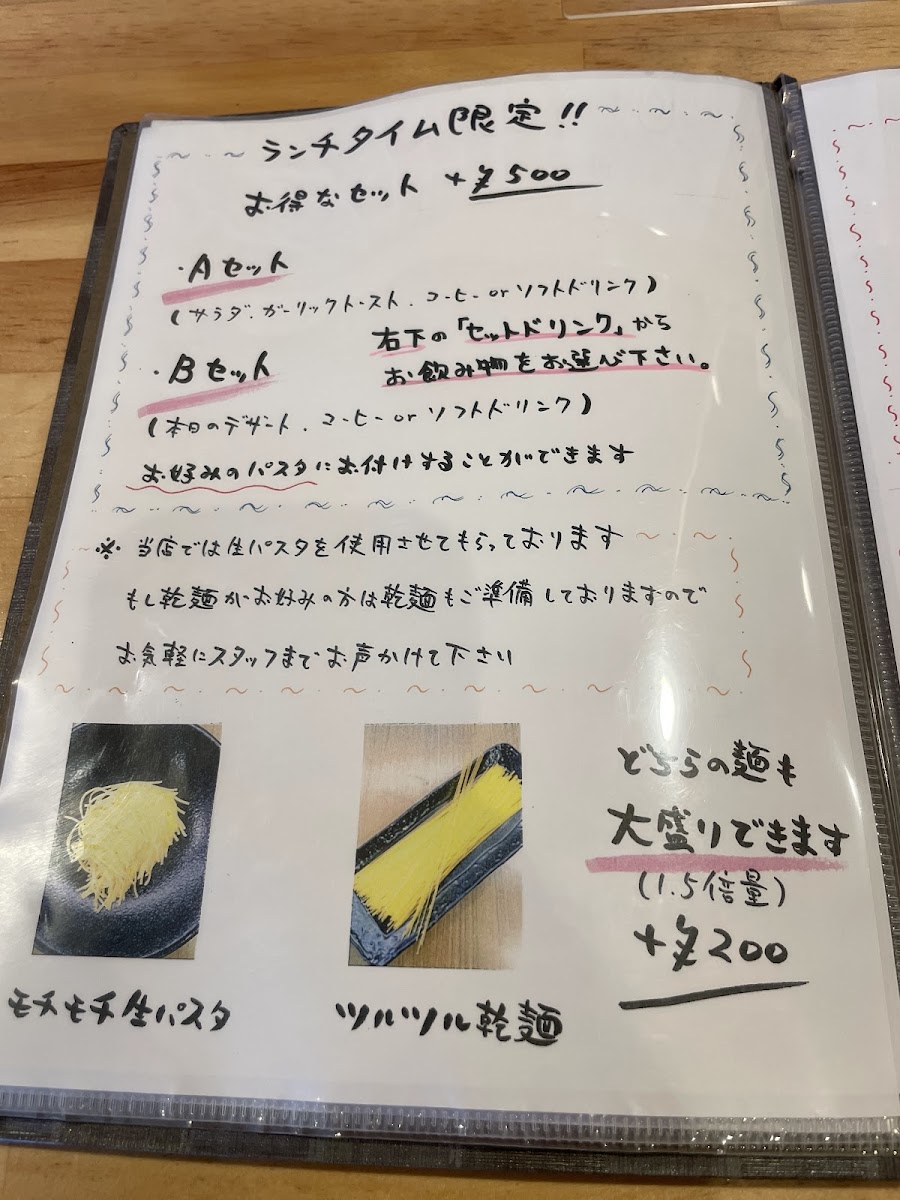 ランチタイム限定!!
お得なセット +¥500
・Aセット
(サラダ、ガーリックトースト、コーヒー or ソフトドリンク)
右下の「セットドリンク」から
お飲み物をお選び下さい。
・Bセット
(本日のデザート、コーヒー or ソフトドリンク)
お好みのパスタにお付けすることができます
※ 当店では生パスタを使用させてもらっております
もし乾麺がお好みの方は乾麺もご準備しておりますので
お気軽にスタッフまでお声かけて下さい
どちらの麺も
大盛りできます
(1.5倍量)
+¥200
モチモチ生パスタ
ツルツル乾麺